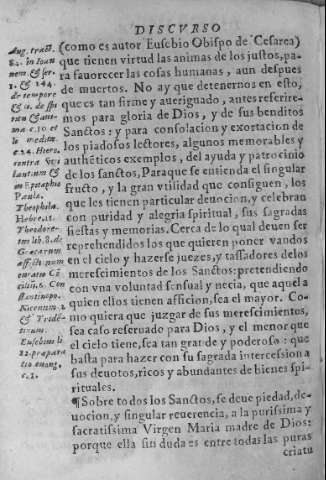 DISCVRSO
(como es autor Eusebio Obispo de Cesarea)
que tienen virtud las animas de los justos, pa
ra fauorecer las cosas humanas, aun despues
de muertos. No ay que detenernos en esto,
que es tan firme y aueriguado, antes referire-
mos para gloria de Dios, y de sus benditos
Sanctos: y para consolacion y exortacion de
los piadosos lectores, algunos memorables y
authẽticos exemplos, del ayuda y patrocinio
de los sanctos, Paraque se entienda el singular
fructo, y la gran vtilidad que consiguen, los
que les tienen particular deuocion, y celebran
con puridad y alegria spiritual, sus sagradas
fiestas y memorias. Cerca de lo qual deuen ser
reprehendidos los que quieren poner vandos
en el cielo y hazerse juezes, y tassadores delos
merescimientos de los Sanctos: pretendiendo
con vna voluntad sensual y necia, que aquel a
quien ellos tienen afficion, sea el mayor. Co-
mo quiera que juzgar de sus merescimientos,
sea caso reseruado para Dios, y el menor que
el cielo tiene, sea tan grande y poderoso: que
basta para hazer con su sagrada intercession a
sus deuotos, ricos y abundantes de bienes spi-
rituales.
¶Sobre todos los Sanctos, se deue piedad, de-
uocion, y singular reuerencia, a la purissima y
sacratissima Virgen Maria madre de Dios:
porque ella sin duda es entre todas las puras
criatu
Aug. tract.
84. in Ioan
nem & ser.
1. & 244.
de tempore
c. 10. et
Hiero.
contra Vi
in Epitaphio
Paula.
Theophila.
Hebre. 11.
Theodore-
tus lib. 8. de
Græcarum
affectionum
cilium 6. Con
stantinopo.
Nicenum 2
& Tridẽ-
tinum.
Eusebius li
12. præpara
tio euang.
c. 1.